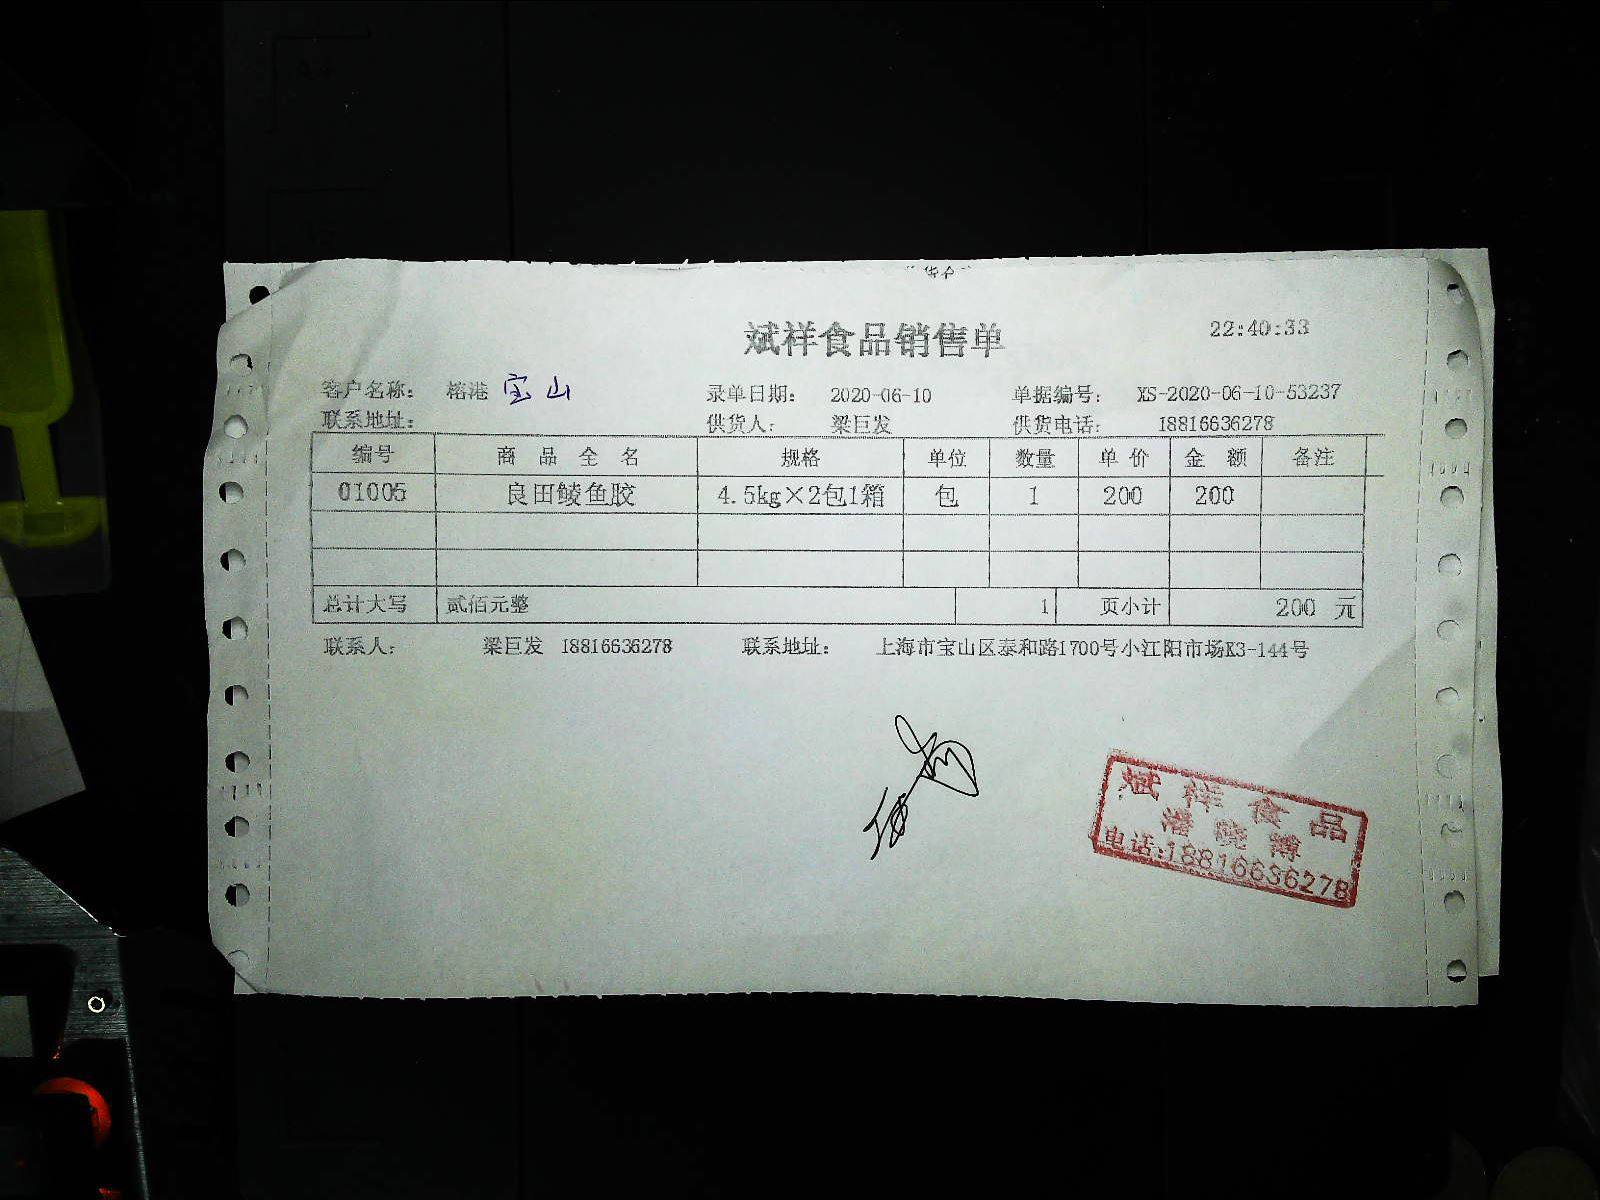 斌祥食品销售单
22:40:33
客户名称： 榕港 宝山 录单日期： 2020-06-10 单据编号： XS-2020-06-10-53237
联系地址： 供货人： 梁巨发 供货电话： 18816636278
编号 商品全名 规格 单位 数量 单价 金额 备注
01005 良田鲮鱼胶 4.5kg×2包1箱 包 1 200 200
总计大写 贰佰元整 1 页小计 200 元
联系人： 梁巨发 18816636278 联系地址： 上海市宝山区泰和路1700号小江阳市场K3-144号
斌祥食品
潘晓博
电话:18816636278